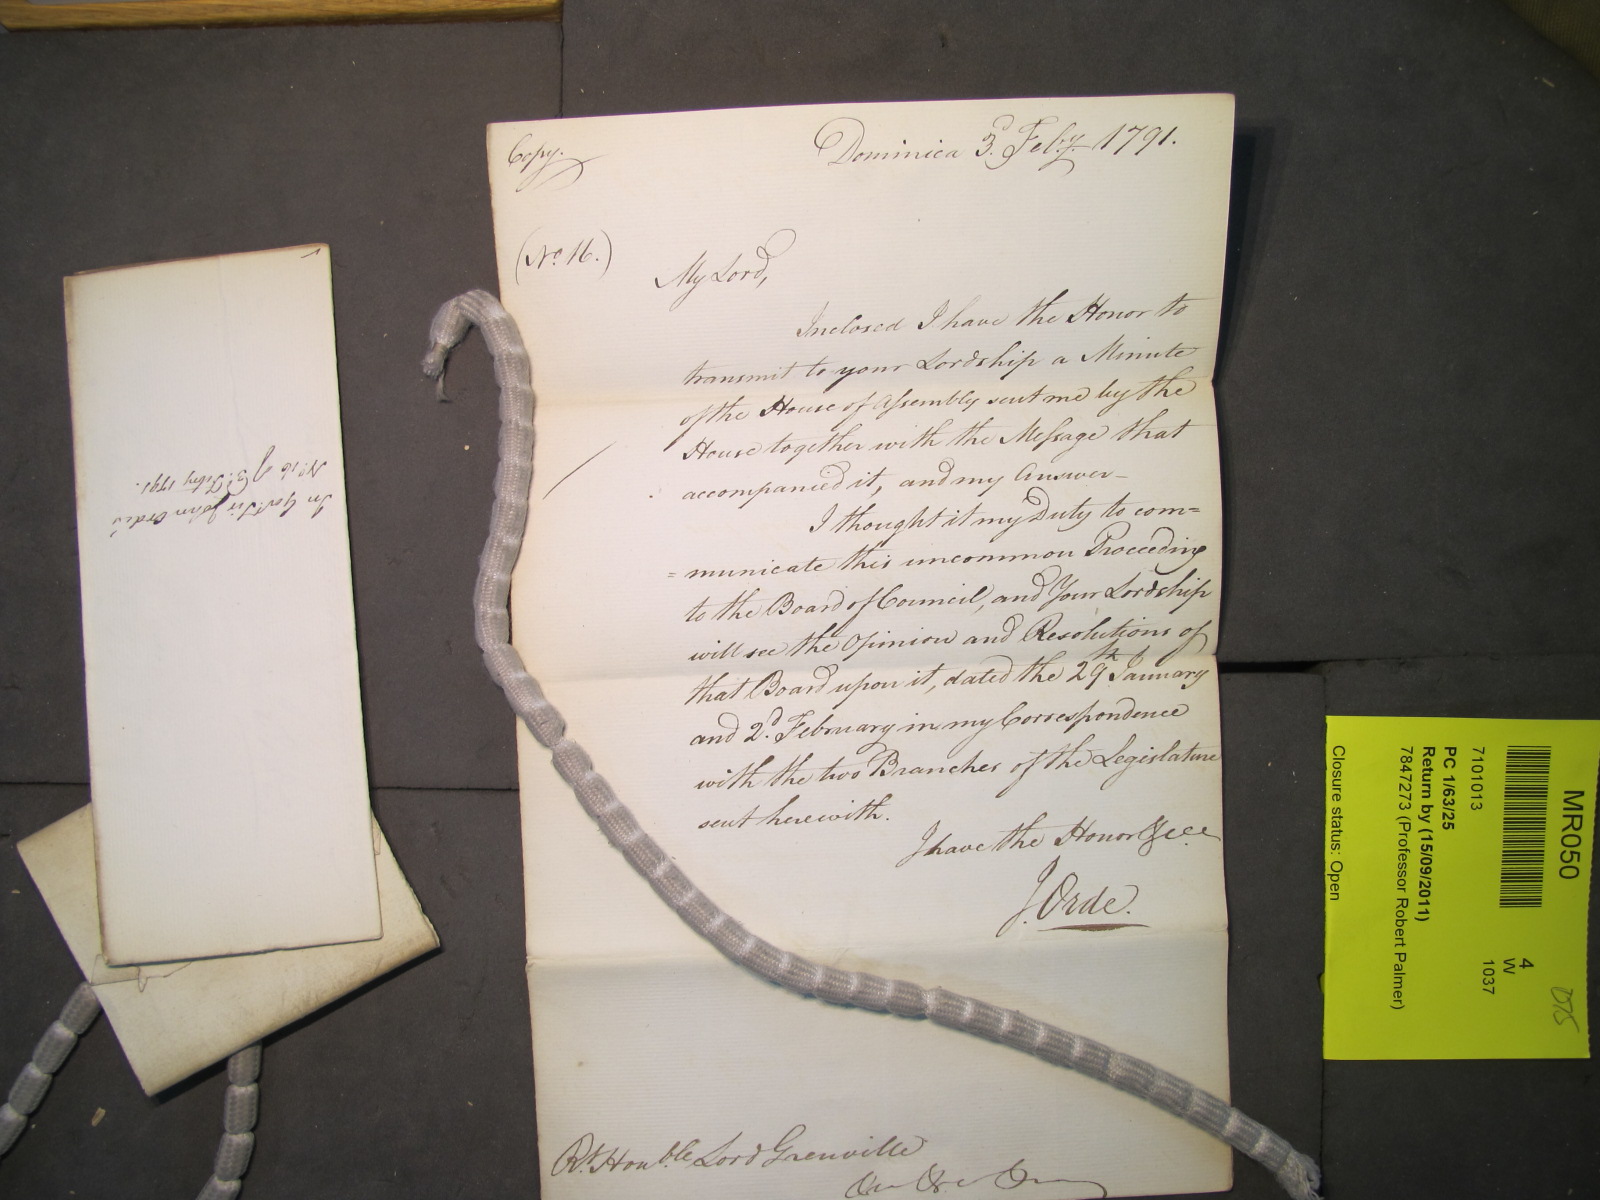 Copy.
Dominica 3d. Feby. 1791.
(No. 16.)
My Lord,
Inclosed I have the Honor to
transmit to your Lordship a Minute
of the House of Assembly sent me by the
House together with the Message that
accompanied it, and my Answer_
I thought it my Duty to com=
=municate this uncommon Proceeding
to the Board of Council, and Your Lordship
will see the Opinion and Resolutions of
that Board upon it, dated the 29th January
and 2d. February in my Correspondence
with the two Branches of the Legislature
sent herewith.
I have the Honor &ca
J. Orde.
Rt. Honble Lord Grenville
In Govr. Sir John Orde's
No. 16 of 3d. Feby 1791.
MR050
7101013
4
W
1037
PC 1/63/25
Return by (15/09/2011)
7847273 (Professor Robert Palmer)
Closure status: Open